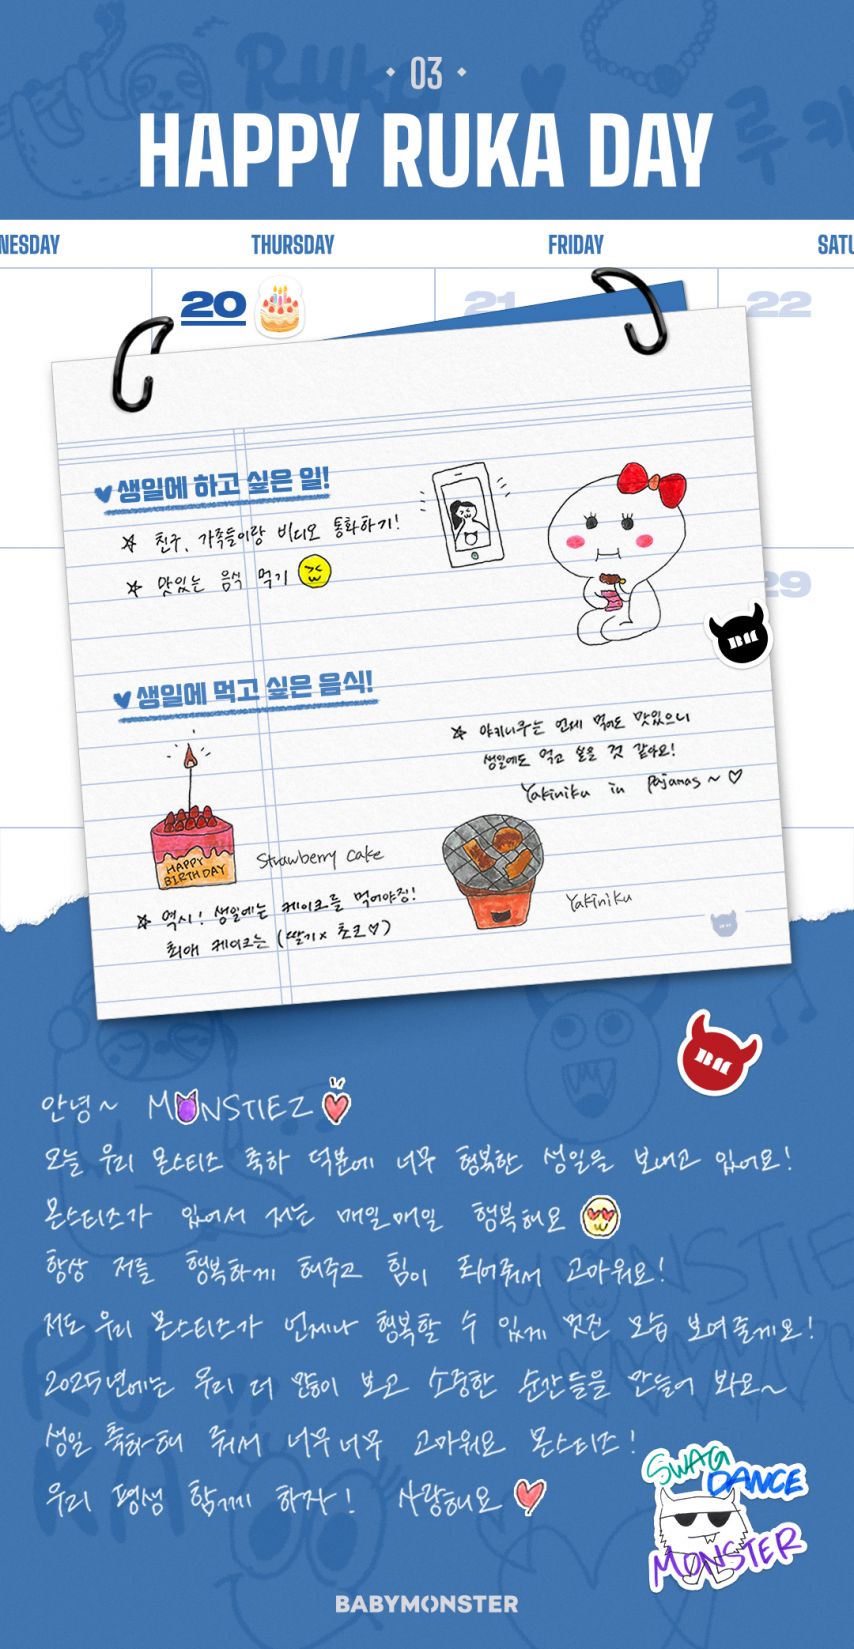 03
HAPPY RUKA DAY
NESDAY THURSDAY FRIDAY SATU
20 21 22
생일에 하고 싶은 일!
친구, 가족들이랑 비디오 통화하기!
맛있는 음식 먹기
29
생일에 먹고 싶은 음식!
야키니쿠는 언제 먹어도 맛있으니
생일에도 먹고 싶을 것 같아요!
Yakiniku in pajamas ~ ♡
HAPPY
BIRTHDAY
Strawberry cake
역시! 생일에는 케이크를 먹어야징!
최애 케이크는 (딸기 x 초코♡)
Yakiniku
안녕~ MONSTIEZ
오늘 우리 몬스티즈 축하 덕분에 너무 행복한 생일을 보내고 있어요!
몬스티즈가 있어서 저는 매일매일 행복해요
항상 저를 행복하게 해주고 힘이 되어줘서 고마워요!
저도 우리 몬스티즈가 언제나 행복할 수 있게 멋진 모습 보여줄게요!
2025년에는 우리 더 많이 보고 소중한 순간들을 만들어 봐요~
생일 축하해 줘서 너무너무 고마워요 몬스티즈!
우리 평생 함께 하자! 사랑해요
SWAG
DANCE
MONSTER
BABYMONSTER